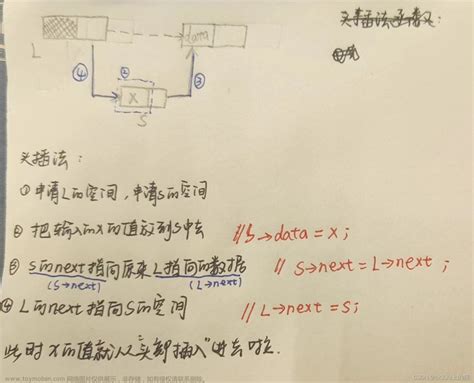 头插法函数:
data
L
④
②
③
X
S
头插法:
①申请L的空间,申请S的空间
②把输入的X的值放到S中去 //S→data=x;
③S的next指向原来L指向的数据 //S→next=L→next;
(S→next) (L→next)
④L的next指向S的空间 //L→next=S;
此时X的值就从“头部插入”进去啦.
www.toymoban.com 网络图片仅供展示,非存储,如有侵权请联系删除。